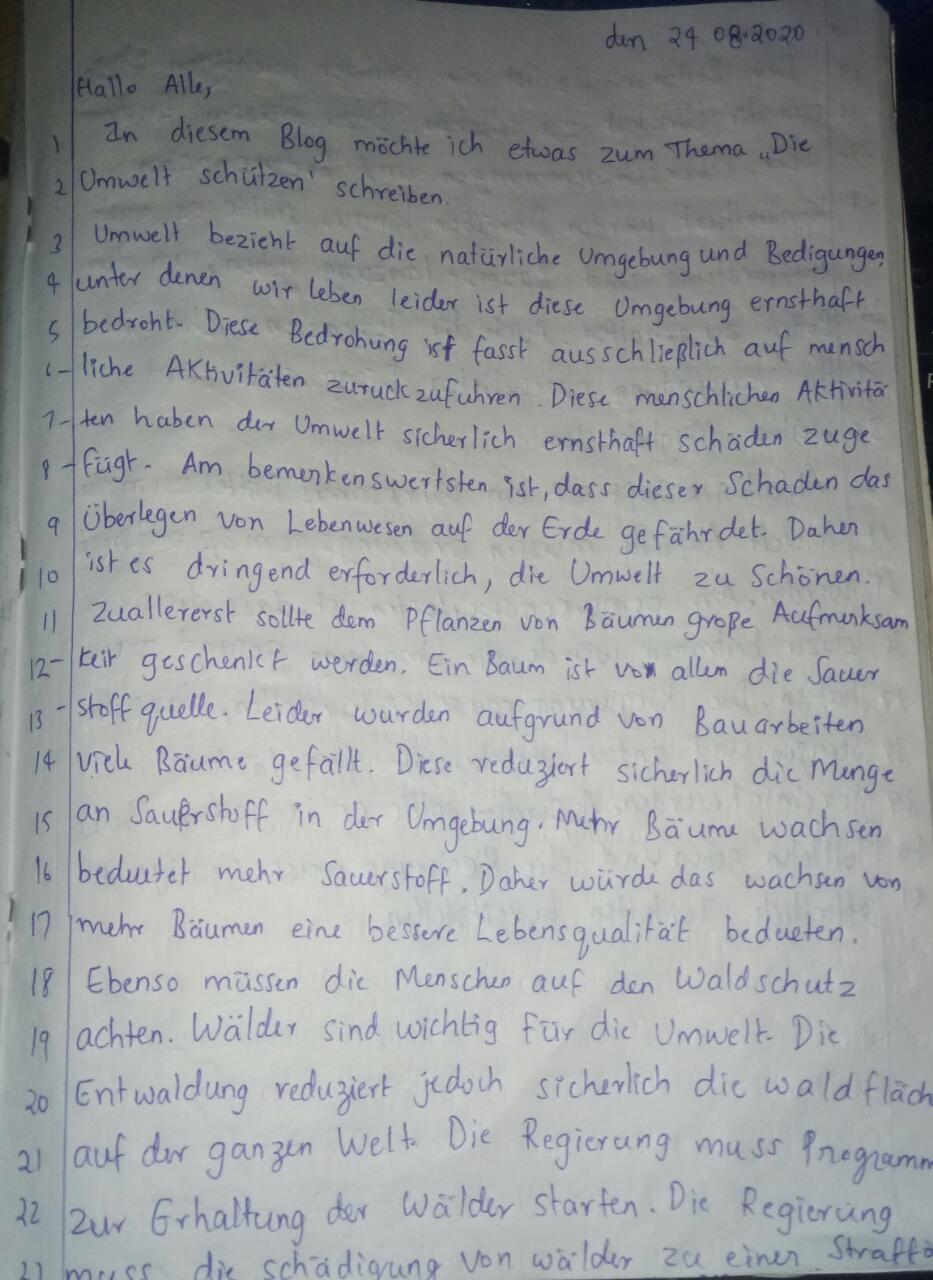 den 24.08.2020
Hallo Alle,
1 In diesem Blog möchte ich etwas zum Thema „Die
2 Umwelt schützen' schreiben.
3 Umwelt bezieht auf die natürliche Umgebung und Bedigungen,
4 unter denen wir leben leider ist diese Umgebung ernsthaft
5 bedroht. Diese Bedrohung ist fasst ausschließlich auf mensch
6- liche Aktivitäten zuruckzufuhren. Diese menschlichen Aktivitä
7- ten haben der Umwelt sicherlich ernsthaft schäden zuge
8- fügt. Am bemerkenswertsten ist, dass dieser Schaden das
9 Überlegen von Lebenwesen auf der Erde gefährdet. Daher
10 ist es dringend erforderlich, die Umwelt zu Schönen.
11 Zuallererst sollte dem Pflanzen von Bäumen große Aufmerksam
12- keit geschenkt werden. Ein Baum ist vor allem die Sauer
13- stoffquelle. Leider wurden aufgrund von Bauarbeiten
14 viele Bäume gefällt. Diese reduziert sicherlich die Menge
15 an Sauerstoff in der Umgebung. Mehr Bäume wachsen
16 bedeutet mehr Sauerstoff. Daher würde das wachsen von
17 mehr Bäumen eine bessere Lebensqualität bedueten.
18 Ebenso müssen die Menschen auf den Waldschutz
19 achten. Wälder sind wichtig für die Umwelt. Die
20 Entwaldung reduziert jedoch sicherlich die waldfläch
21 auf der ganzen Welt. Die Regierung muss Programm
22 zur Erhaltung der Wälder starten. Die Regierung
23 muss die schädigung von wälder zu einer Straffa